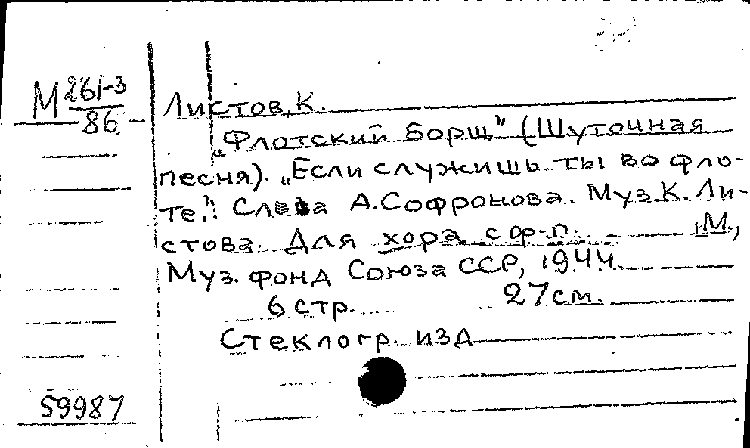 М 261-3
86
Листов, К.
„Флотский борщ" (Шуточная
песня). „Если служишь ты во фло-
те." Слова А.Софронова. Муз. К. Ли-
стова. Для хора с ф-п. М.,
Муз. фонд Союза ССР, 1944.
6 стр. 27 см.
Стеклогр. изд
59987